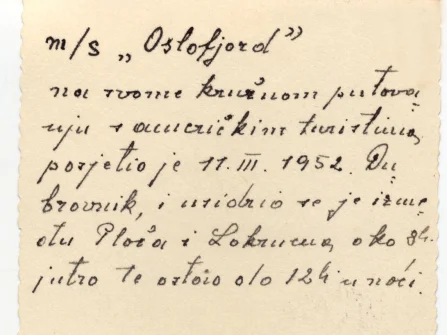 m/s „Oslofjord”
na svome kružnom putova
nju s američkim turistima,
posjetio je 11. III. 1952. Du
brovnik, i usidrio se je izme
đu Ploča i Lokruma, oko 8h.
jutro te ostao do 12h u noći.